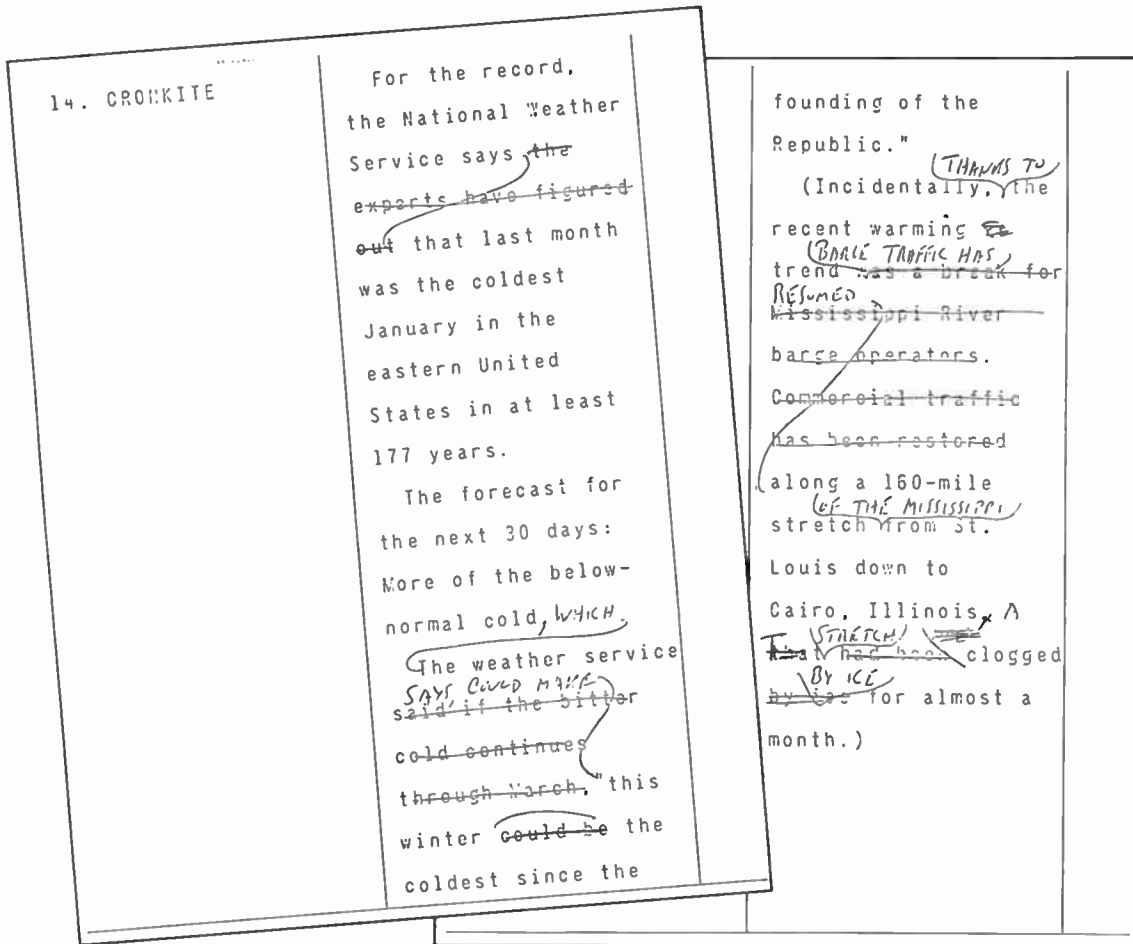 14. CRONKITE
For the record,
the National Weather
Service says the
experts have figured
out that last month
was the coldest
January in the
eastern United
States in at least
177 years.
The forecast for
the next 30 days:
More of the below-
normal cold, WHICH
The weather service
SAYS COULD MAKE
said, if the bitter
cold continues
through March, "this
winter could be the
coldest since the
founding of the
Republic."
THANKS TO
(Incidentally, the
recent warming
BARGE TRAFFIC HAS
trend was a break for
RESUMED
Mississippi River
barge operators.
Commercial traffic
has been restored
along a 160-mile
OF THE MISSISSIPPI
stretch from St.
Louis down to
Cairo, Illinois, A
STRETCH
that had been clogged
BY ICE
by ice for almost a
month.)